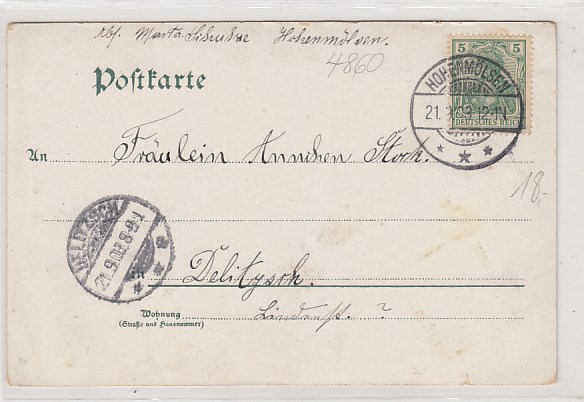 Abs. Marta Schulze Hohenmölsen.
4860
Postkarte
5 5
DEUTSCHES REICH
HOHENMÖLSEN
21. 9 03 12-1N
An Fräulein Annchen Stock.
18.-
DELITZSCH
21.9.03 8-9N
Delitzsch.
Lindenst. ?
Wohnung
(Straße und Hausnummer)